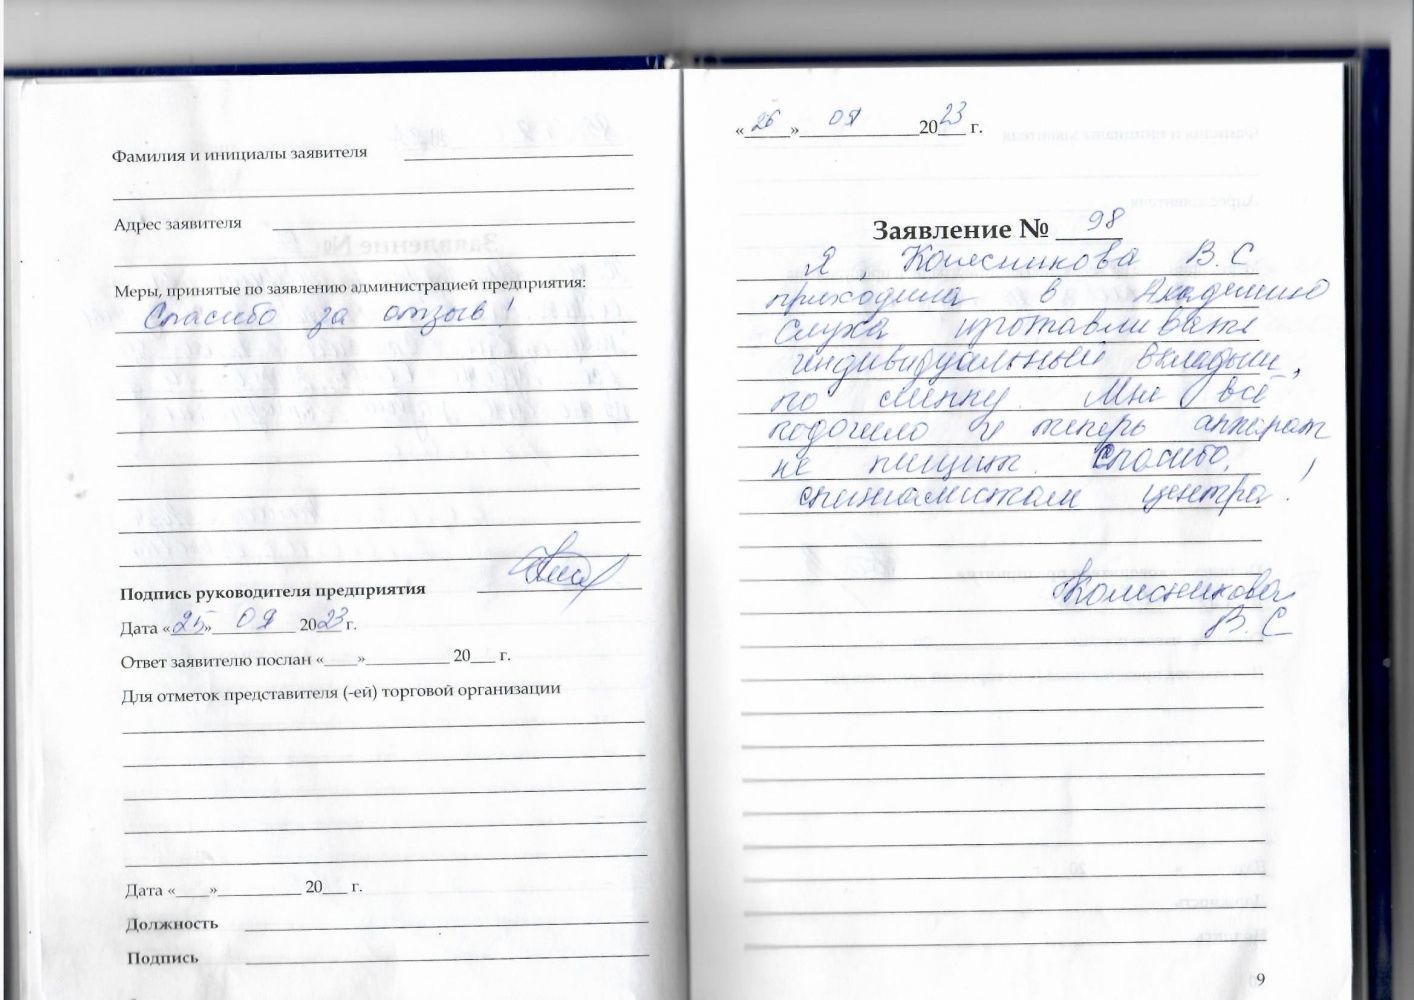 Фамилия и инициалы заявителя
Адрес заявителя
Меры, принятые по заявлению администрацией предприятия:
Спасибо за отзыв!
Подпись руководителя предприятия
Дата «25» 09 2023 г.
Ответ заявителю послан «____»__________ 20___ г.
Для отметок представителя (-ей) торговой организации
Дата «____»__________ 20___ г.
Должность
Подпись
«26» 09 2023 г.
Заявление № 98
Я, Колесникова В.С
приходила в Академию
Слуха изготавливать
индивидуальный вкладыш,
по слепку. Мне всё
подошло и теперь аппарат
не пищит. Спасибо,
специалистам центра!
Колесникова
В.С
9